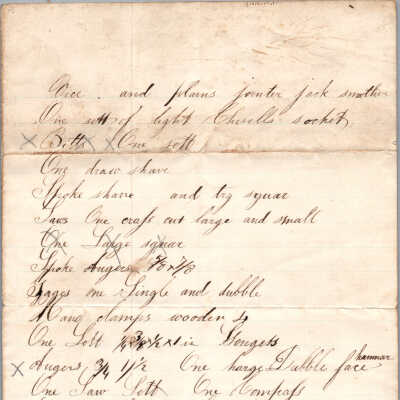 Vice and plains jointer jack smother
One sett of light Chisells socket
Bitts One sett
One draw shave
Spoke shave and try squar
Saws One crass cut large and small
One Large squar
Spoke Augers 5/8 7/8
Gages one Single and dubble
Hand clamps wooden 4
One Sett 1/2
Augers 3/4 1 1/2 One large Dubble face hammar
One Saw Sett One Compass